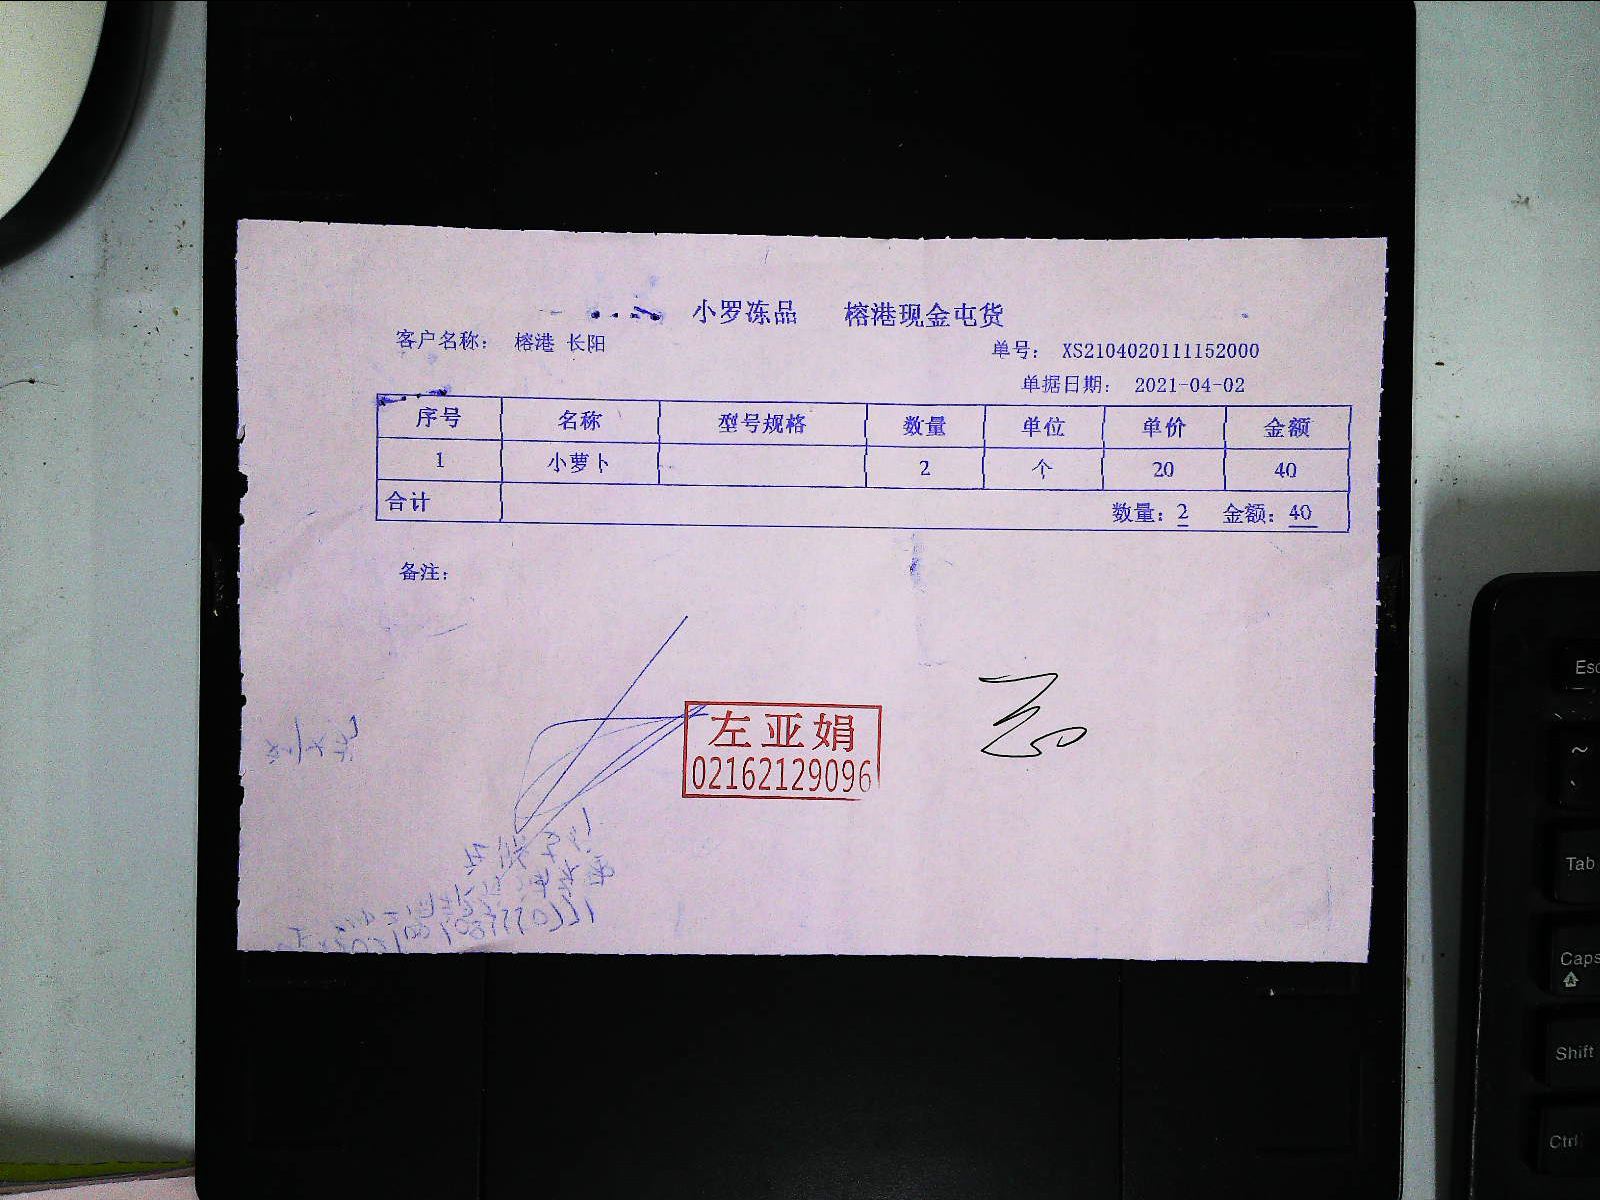 小罗冻品 榕港现金屯货
客户名称： 榕港 长阳
单号： XS2104020111152000
单据日期： 2021-04-02
序号 名称 型号规格 数量 单位 单价 金额
1 小萝卜 2 个 20 40
合计 数量：2 金额：40
备注：
左亚娟
02162129096
Esc
~
Tab
Caps
Shift
Ctrl